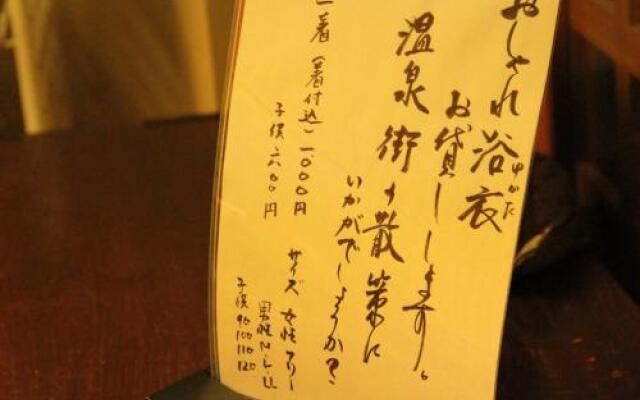 おしゃれ浴衣
ゆかた
お貸しします。
温泉街の散策に
いかがでしょうか?
一着(着付込)一、〇〇〇円
子供 六〇〇円
サイズ 女性 フリー
男性 M・L・LL
子供 90 100 110 120